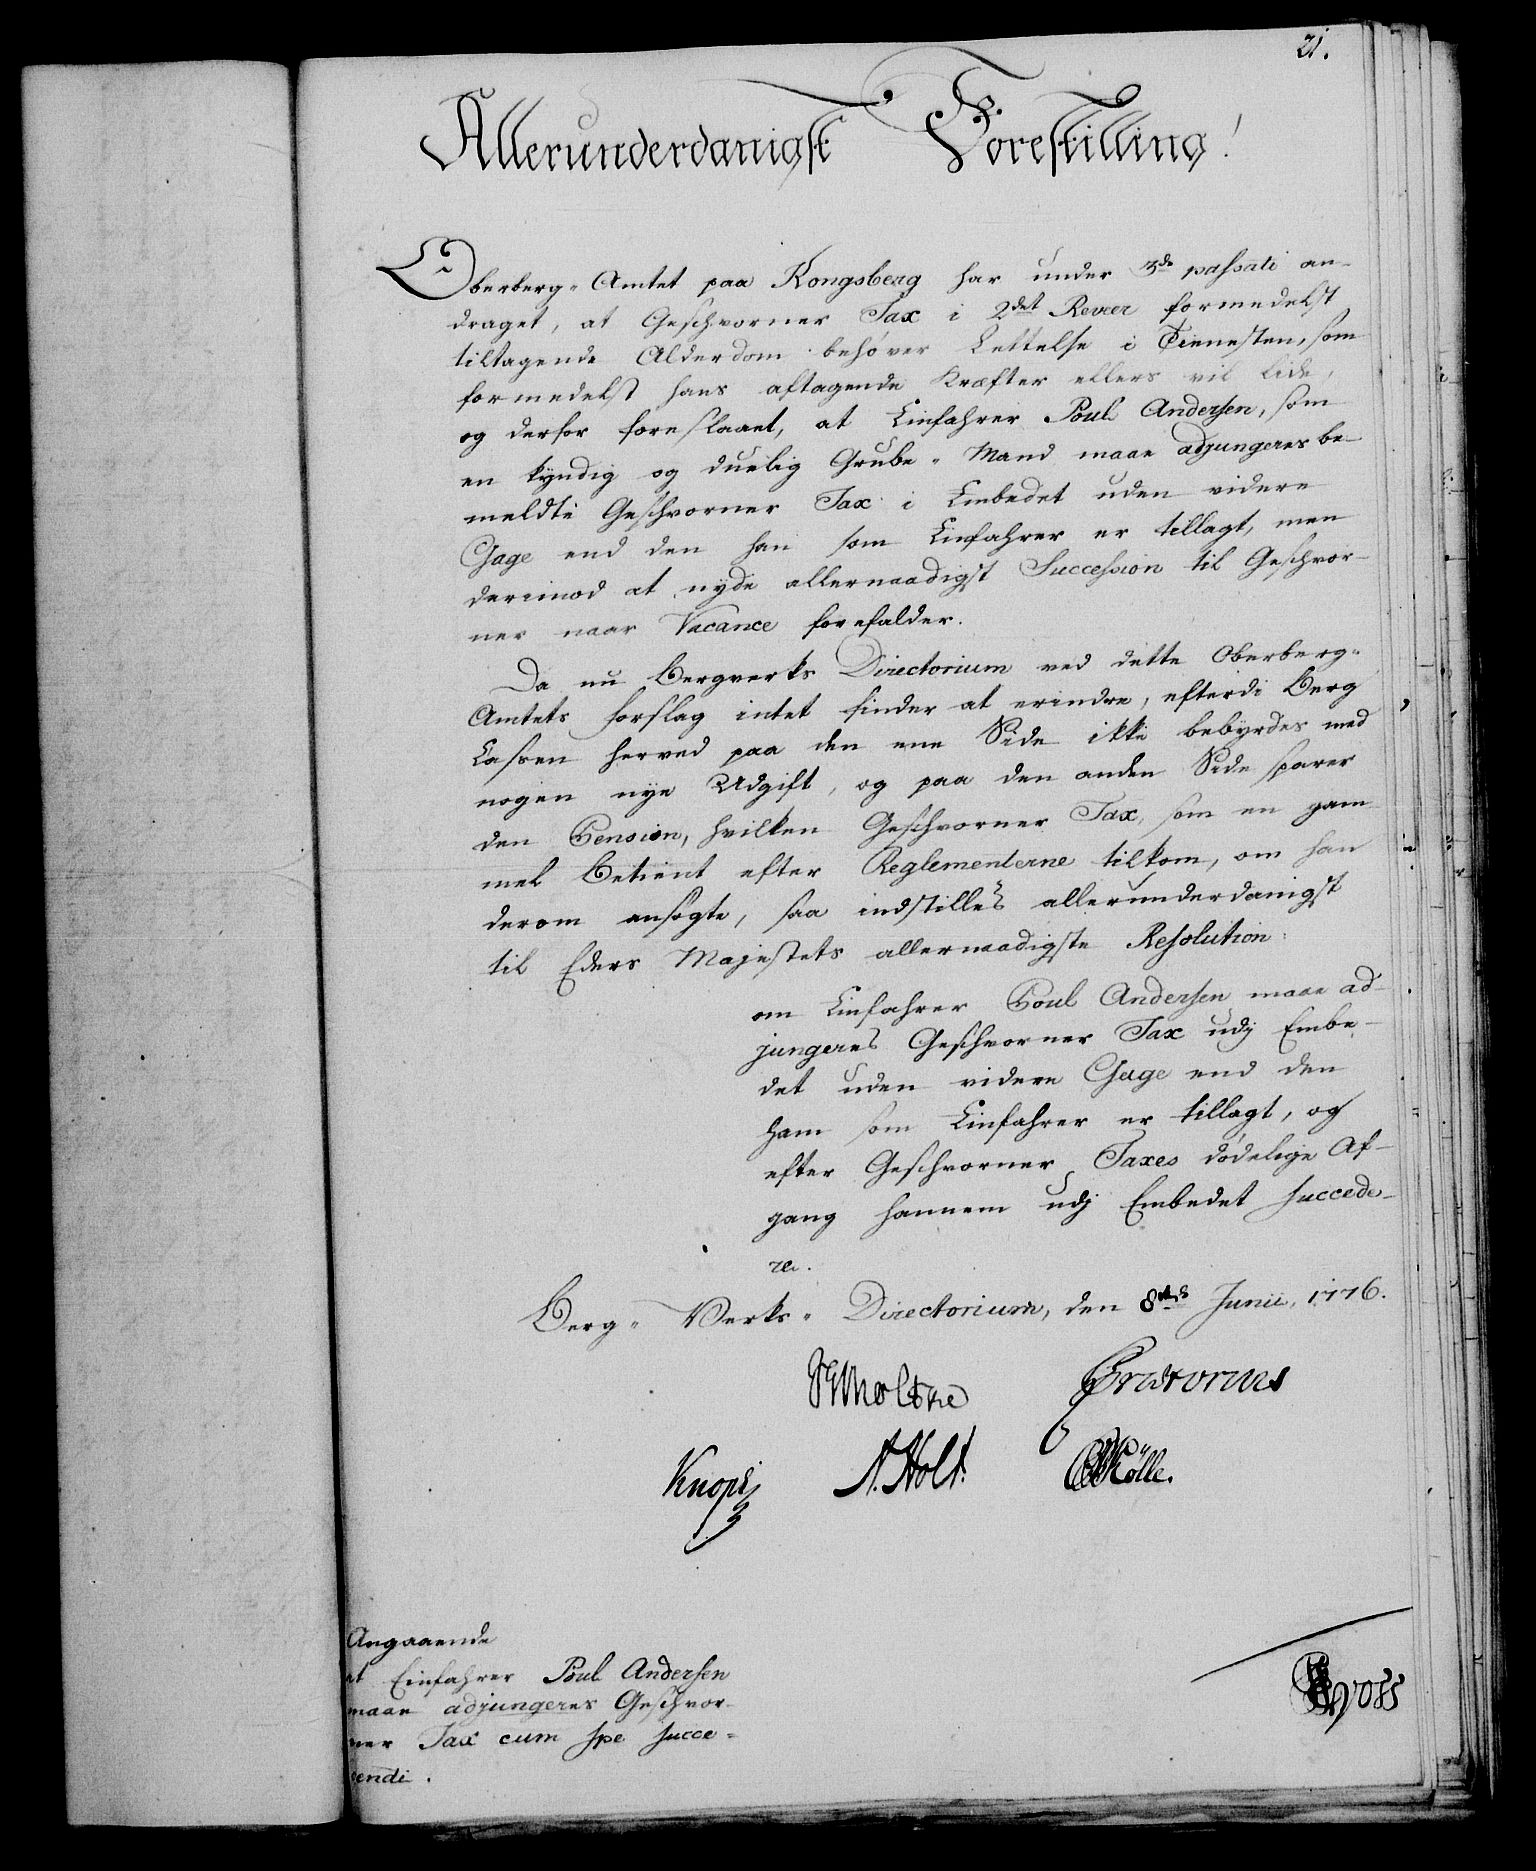 21.
Allerunderdanigst Forestilling!
Oberberg-Amtet paa Kongsberg har under 3de passati an-
draget, at Geschworner Tax i 2det Revier formedelst
tiltagende Alderdom behøver Lettelse i Tienesten, som
formedelst hans aftagende Kræfter ellers vil lide,
og derfor foreslaaet, at Einfahrer Poul Andersen, som
en kyndig og duelig Grube-Mand maae adjungeres be-
meldte Geschworner Tax i Embedet uden videre
Gage end den han som Einfahrer er tillagt, men
derimod at nyde allernaadigst Succession til Geschwor-
ner naar Vacance forefalder.
Da nu Bergverks Directorium ved dette Oberberg-
Amtets Forslag intet finder at erindre, efterdi Berg
Cassen herved paa den ene Side ikke bebyrdes med
nogen nye Udgift, og paa den anden Side sparer
den Pension, hvilken Geschworner Tax, som en gam
mel Betient efter Reglementerne tilkom, om han
derom ansøgte, saa indstilles allerunderdanigst
til Eders Majestets allernaadigste Resolution:
om Einfahrer Poul Andersen maae ad-
jungeres Geschworner Tax udj Embe-
det uden videre Gage end den
ham som Einfahrer er tillagt, og
efter Geschworner Taxes dødelige Af-
gang hannem udj Embedet succede-
re.
Berg-Verks-Directorium, den 8de Junii, 1776.
Moltke
Knopf A. Holt. Kölle.
Angaaende
at Einfahrer Poul Andersen
maae adjungeres Geschwor-
ner Tax cum spe succe-
dendi.